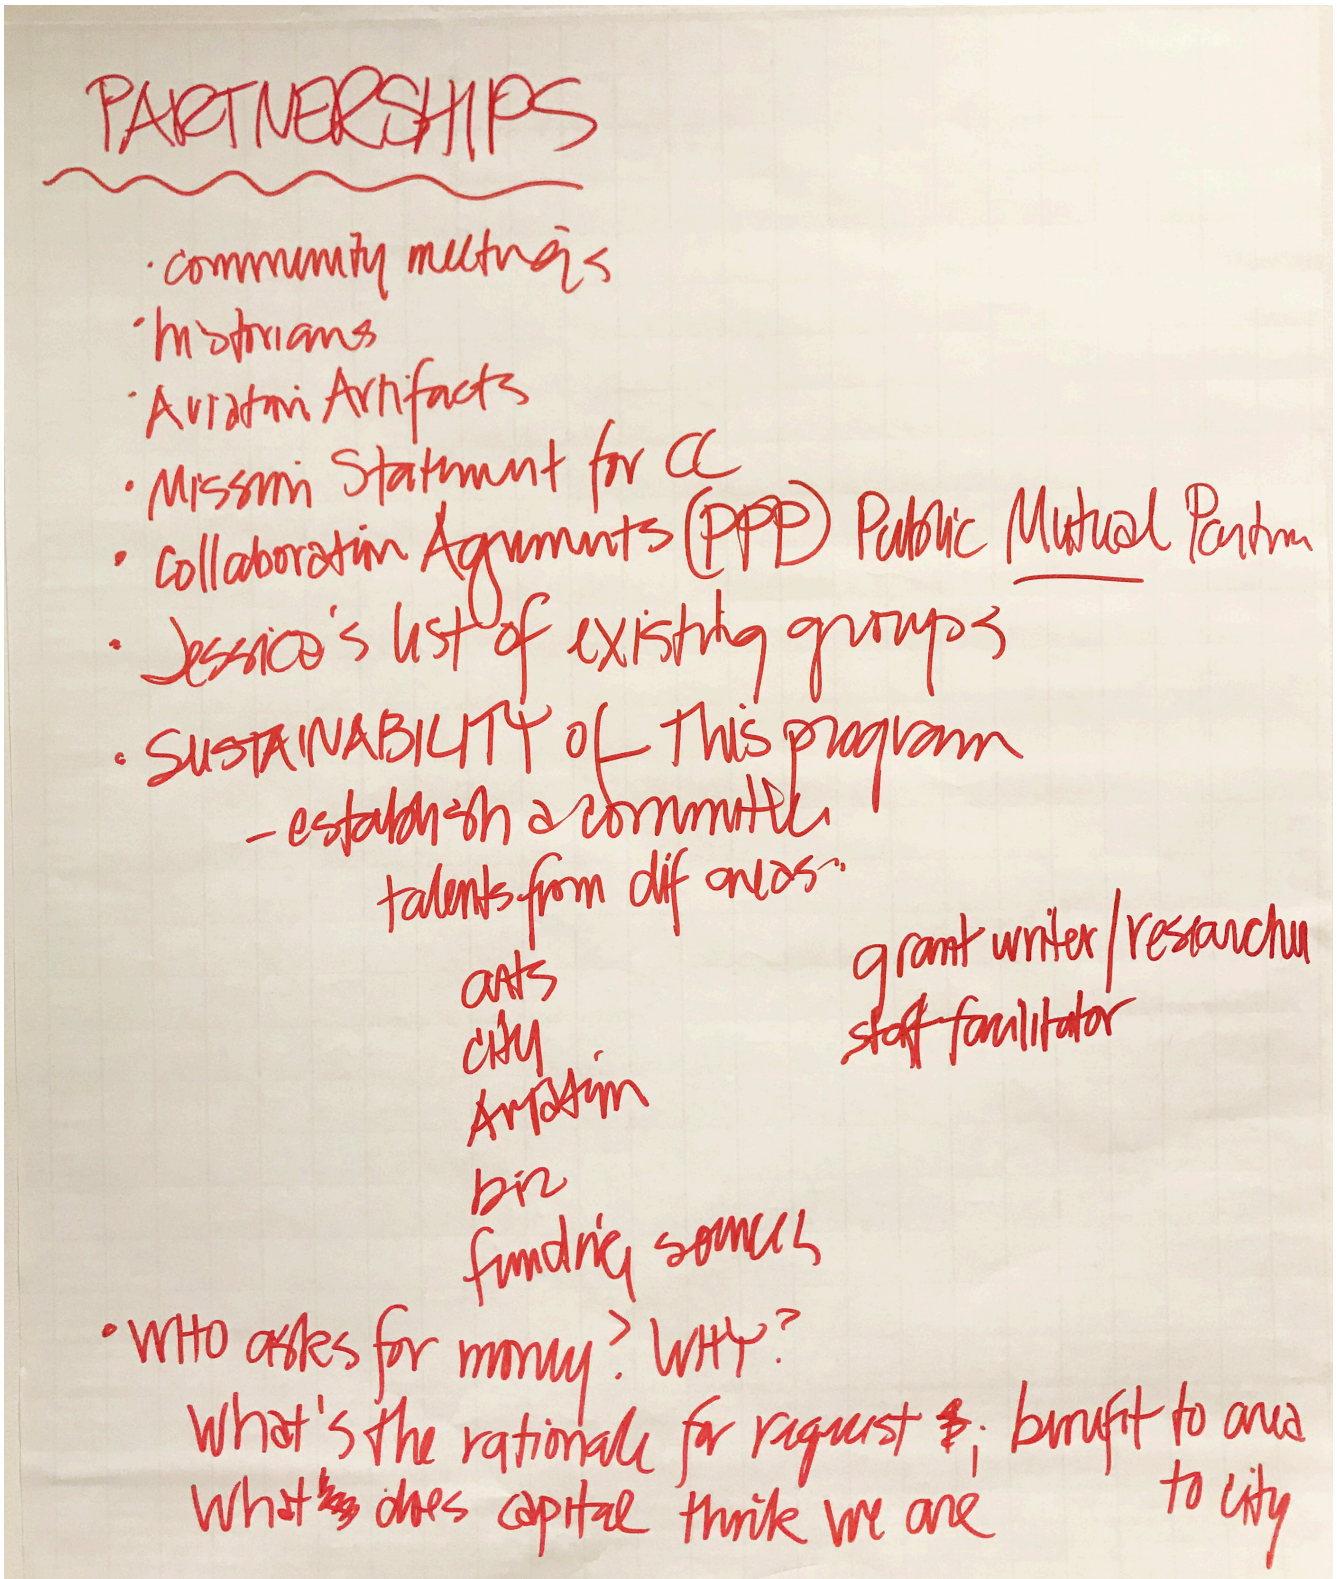 PARTNERSHIPS
· community meetings
· historians
· Aviation Artifacts
· Mission Statement for CC
· Collaboration Agreements (PPP) Public Mutual Partner
· Jessica's list of existing groups
· SUSTAINABILITY of this program
- establish a committee
talents from dif areas
arts
grant writer/researcher
city
staff facilitator
Aviation
biz
funding sources
· WHO asks for money? WHY?
What's the rationale for request $; benefit to area
to city
What does capital think we are